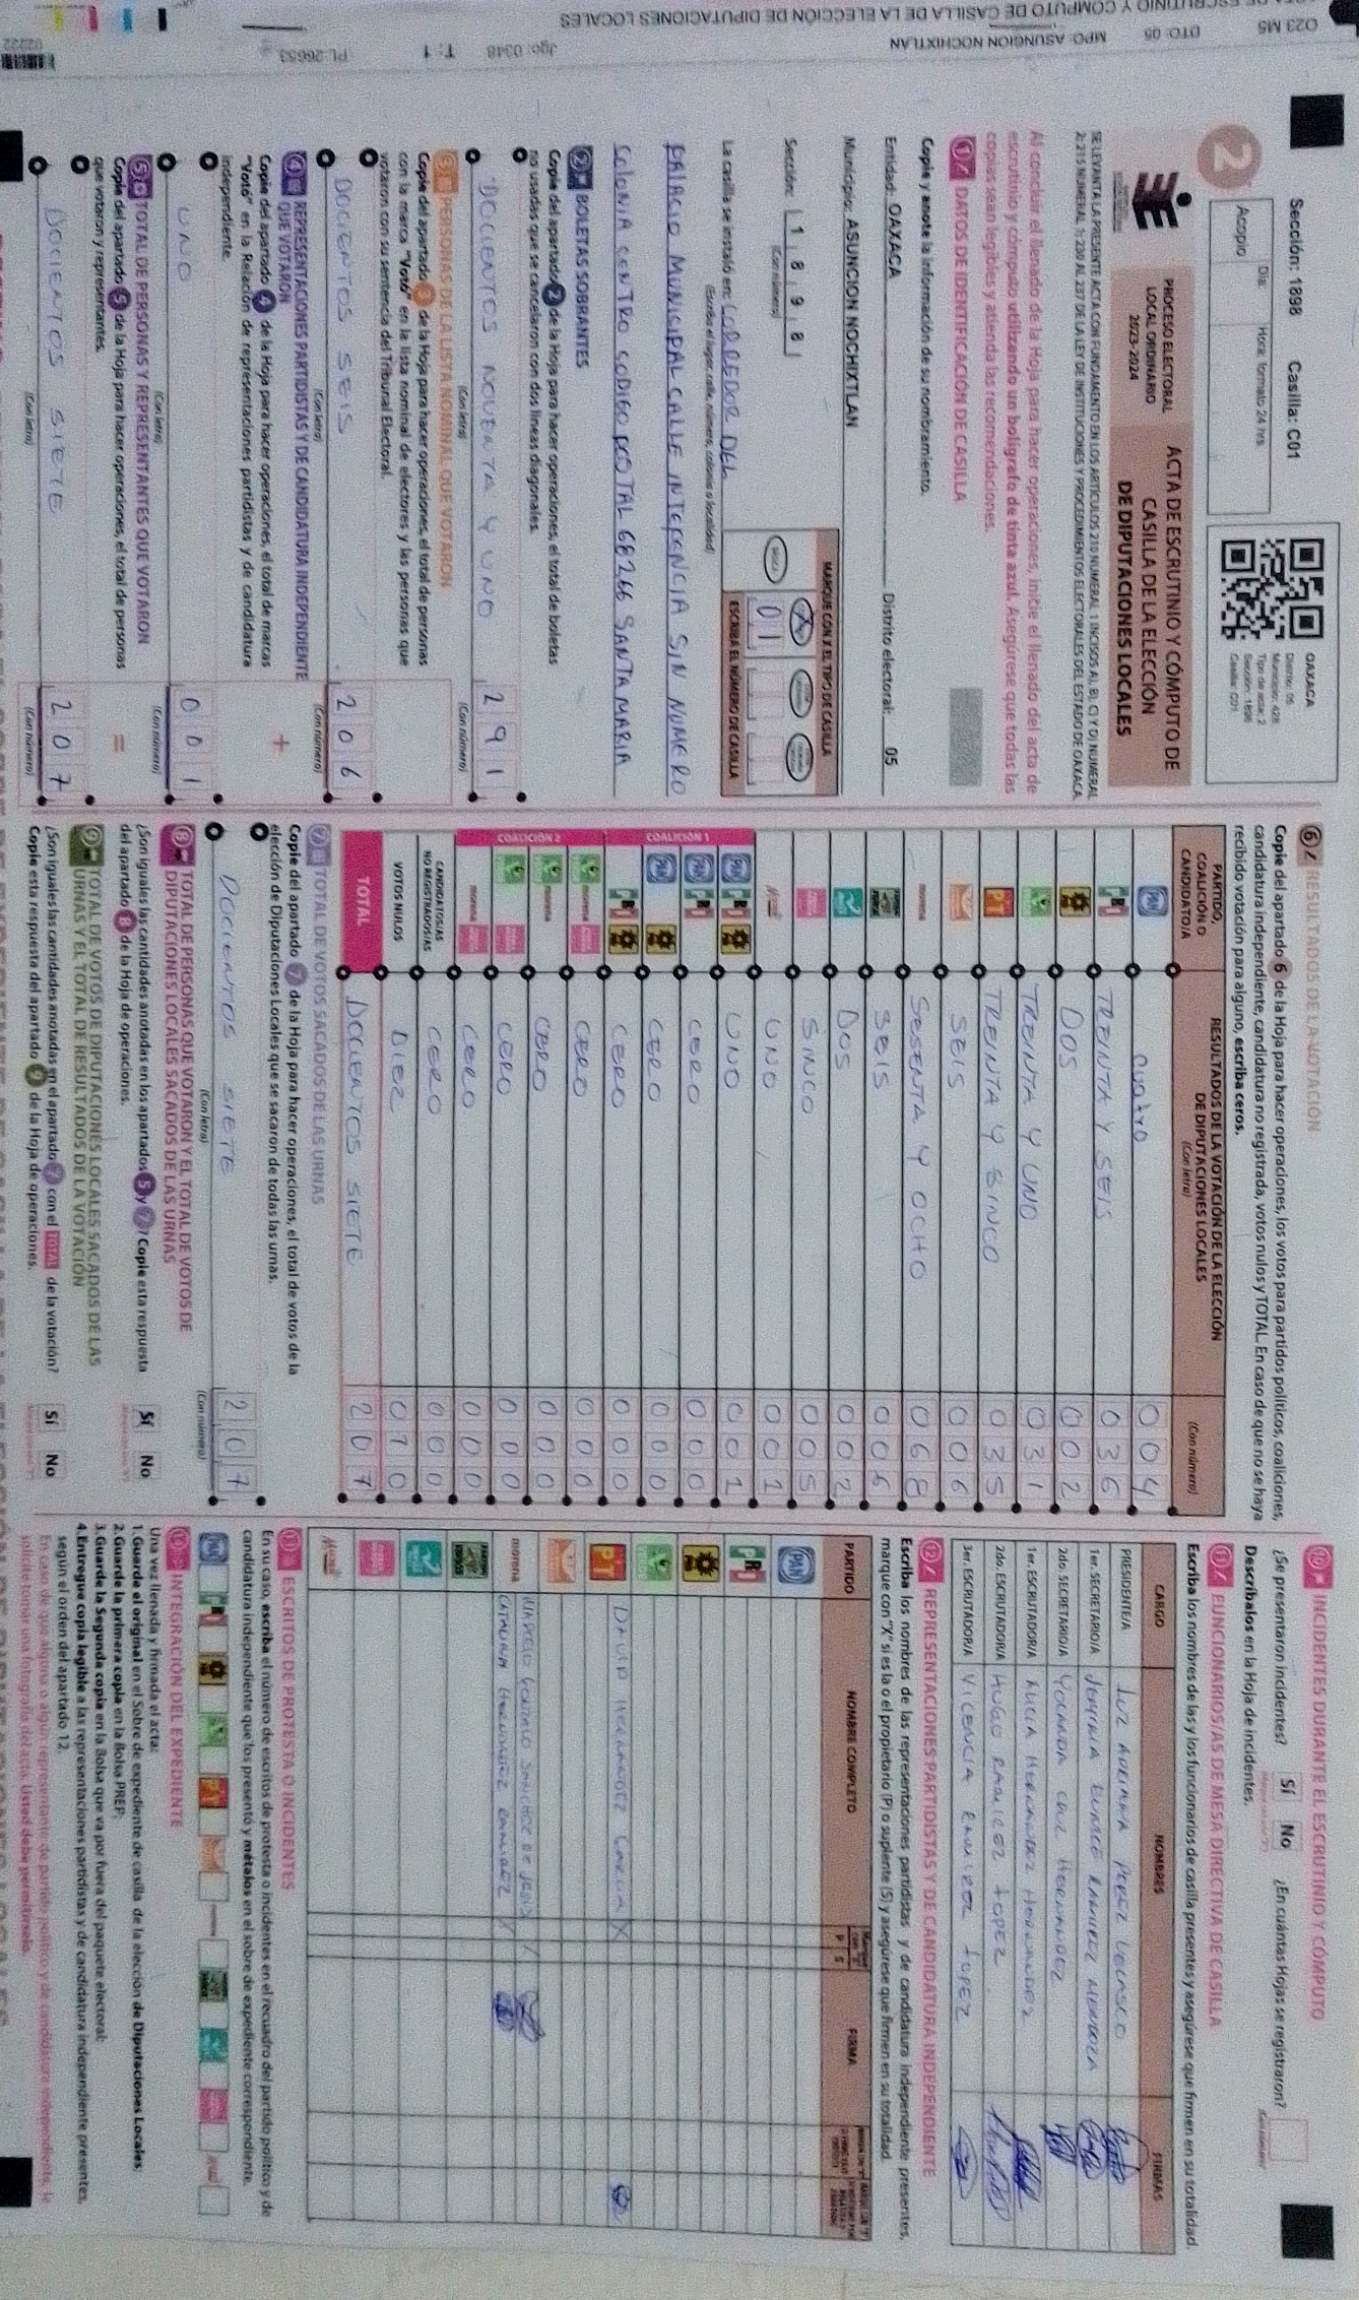 Sección: 1898 Casilla: C01
Día: Hora: formato 24 hrs.
Acopio
2
OAXACA
Distrito: 05
Municipio: 428
Tipo de acta: 2
Sección: 1898
Casilla: C01
PROCESO ELECTORAL
LOCAL ORDINARIO
2023-2024
ACTA DE ESCRUTINIO Y CÓMPUTO DE
CASILLA DE LA ELECCIÓN
DE DIPUTACIONES LOCALES
Al concluir el llenado de la Hoja para hacer operaciones, inicie el llenado del acta de
escrutinio y cómputo utilizando un bolígrafo de tinta azul. Asegúrese que todas las
copias sean legibles y atienda las recomendaciones.
1 DATOS DE IDENTIFICACIÓN DE CASILLA
Copie y anote la información de su nombramiento.
Entidad: OAXACA Distrito electoral: 05
Municipio: ASUNCION NOCHIXTLAN
Sección: 1 8 9 8
(Con número)
MARQUE CON X EL TIPO DE CASILLA
0 1
ESCRIBA EL NÚMERO DE CASILLA
La casilla se instaló en: CORREDOR DEL
(Escriba el lugar, calle, número, colonia o localidad)
PALACIO MUNICIPAL CALLE INTERENCIA SIN NUMERO
COLONIA CENTRO CODIGO POSTAL 68266 SANTA MARIA
2 BOLETAS SOBRANTES
Copie del apartado 2 de la Hoja para hacer operaciones, el total de boletas
no usadas que se cancelaron con dos líneas diagonales.
DOCIENTOS NOVENTA Y UNO 2 9 1
(Con letra) (Con número)
3 PERSONAS DE LA LISTA NOMINAL QUE VOTARON
Copie del apartado 3 de la Hoja para hacer operaciones, el total de personas
con la marca "Votó" en la lista nominal de electores y las personas que
votaron con su sentencia del Tribunal Electoral.
DOCIENTOS SEIS 2 0 6
(Con letra) (Con número)
4 REPRESENTACIONES PARTIDISTAS Y DE CANDIDATURA INDEPENDIENTE
QUE VOTARON
Copie del apartado 4 de la Hoja para hacer operaciones, el total de marcas
"Votó" en la Relación de representaciones partidistas y de candidatura
independiente.
+
UNO 0 0 1
(Con letra) (Con número)
5 TOTAL DE PERSONAS Y REPRESENTANTES QUE VOTARON
Copie del apartado 5 de la Hoja para hacer operaciones, el total de personas
que votaron y representantes.
=
DOCIENTOS SIETE 2 0 7
(Con letra) (Con número)
6 RESULTADOS DE LA VOTACIÓN
Copie del apartado 6 de la Hoja para hacer operaciones, los votos para partidos políticos, coaliciones,
candidatura independiente, candidatura no registrada, votos nulos y TOTAL. En caso de que no se haya
recibido votación para alguno, escriba ceros.
PARTIDO, COALICIÓN O CANDIDATO/A
RESULTADOS DE LA VOTACIÓN DE LA ELECCIÓN
DE DIPUTACIONES LOCALES
(Con letra) (Con número)
PAN cuatro 0 0 4
PRI TREINTA Y SEIS 0 3 6
DOS 0 0 2
TREINTA Y UNO 0 3 1
PT TREINTA Y SINCO 0 3 5
SEIS 0 0 6
morena SESENTA Y OCHO 0 6 8
SEIS 0 0 6
DOS 0 0 2
SINCO 0 0 5
UNO 0 0 1
COALICIÓN 1
PAN PRI UNO 0 0 1
PAN PRI CERO 0 0 0
PAN CERO 0 0 0
PRI CERO 0 0 0
COALICIÓN 2
morena CERO 0 0 0
morena CERO 0 0 0
CERO 0 0 0
morena CERO 0 0 0
CANDIDATOS/AS
NO REGISTRADOS/AS CERO 0 0 0
VOTOS NULOS DIEZ 0 1 0
TOTAL DOCIENTOS SIETE 2 0 7
7 TOTAL DE VOTOS SACADOS DE LAS URNAS
Copie del apartado 7 de la Hoja para hacer operaciones, el total de votos de la
elección de Diputaciones Locales que se sacaron de todas las urnas.
DOCIENTOS SIETE 2 0 7
(Con letra) (Con número)
8 TOTAL DE PERSONAS QUE VOTARON Y EL TOTAL DE VOTOS DE
DIPUTACIONES LOCALES SACADOS DE LAS URNAS
¿Son iguales las cantidades anotadas en los apartados 5 y 7? Copie esta respuesta
del apartado 8 de la Hoja de operaciones. Sí No
9 TOTAL DE VOTOS DE DIPUTACIONES LOCALES SACADOS DE LAS
URNAS Y EL TOTAL DE RESULTADOS DE LA VOTACIÓN
¿Son iguales las cantidades anotadas en el apartado 7 con el TOTAL de la votación?
Copie esta respuesta del apartado 9 de la Hoja de operaciones. Sí No
10 INCIDENTES DURANTE EL ESCRUTINIO Y CÓMPUTO
¿Se presentaron incidentes? Sí No ¿En cuántas Hojas se registraron?
Descríbalos en la Hoja de incidentes.
11 FUNCIONARIOS/AS DE MESA DIRECTIVA DE CASILLA
Escriba los nombres de las y los funcionarios de casilla presentes y asegúrese que firmen en su totalidad.
CARGO NOMBRES FIRMAS
PRESIDENTE/A LUZ ADRIANA PEREZ VELASCO
1er. SECRETARIO/A RAMIREZ MENDOZA
2do. SECRETARIO/A YOLANDA CRUZ HERNANDEZ
1er. ESCRUTADOR/A ALICIA HERNANDEZ HERNANDEZ
2do. ESCRUTADOR/A HUGO RAMIREZ LOPEZ
3er. ESCRUTADOR/A VICENCIA RAMIREZ LOPEZ
12 REPRESENTACIONES PARTIDISTAS Y DE CANDIDATURA INDEPENDIENTE
Escriba los nombres de las representaciones partidistas y de candidatura independiente presentes,
marque con "X" si es la o el propietario (P) o suplente (S) y asegúrese que firmen en su totalidad.
PARTIDO NOMBRE COMPLETO P S FIRMA
PAN
PRI
PT DAVID HERNANDEZ GARCIA X
morena SANCHEZ DE JESUS
CATALINA HERNANDEZ RAMIREZ
13 ESCRITOS DE PROTESTA O INCIDENTES
En su caso, escriba el número de escritos de protesta o incidentes en el recuadro del partido político y de
candidatura independiente que los presentó y métalos en el sobre de expediente correspondiente.
INTEGRACIÓN DEL EXPEDIENTE
Una vez llenada y firmada el acta:
1. Guarde el original en el Sobre de expediente de casilla de la elección de Diputaciones Locales;
2. Guarde la primera copia en la Bolsa PREP;
3. Guarde la Segunda copia en la Bolsa que va por fuera del paquete electoral;
4. Entregue copia legible a las representaciones partidistas y de candidatura independiente presentes,
según el orden del apartado 12.
En caso de que alguna o algún representante de partido político y de candidatura independiente, le
solicite tomar una fotografía del acta. Usted debe permitírselo.
O23 M5 DTO: 05 MPO: ASUNCION NOCHIXTLAN Jgo: 0348 T: 1 PL: 26653
ESCRUTINIO Y CÓMPUTO DE CASILLA DE LA ELECCIÓN DE DIPUTACIONES LOCALES
02222